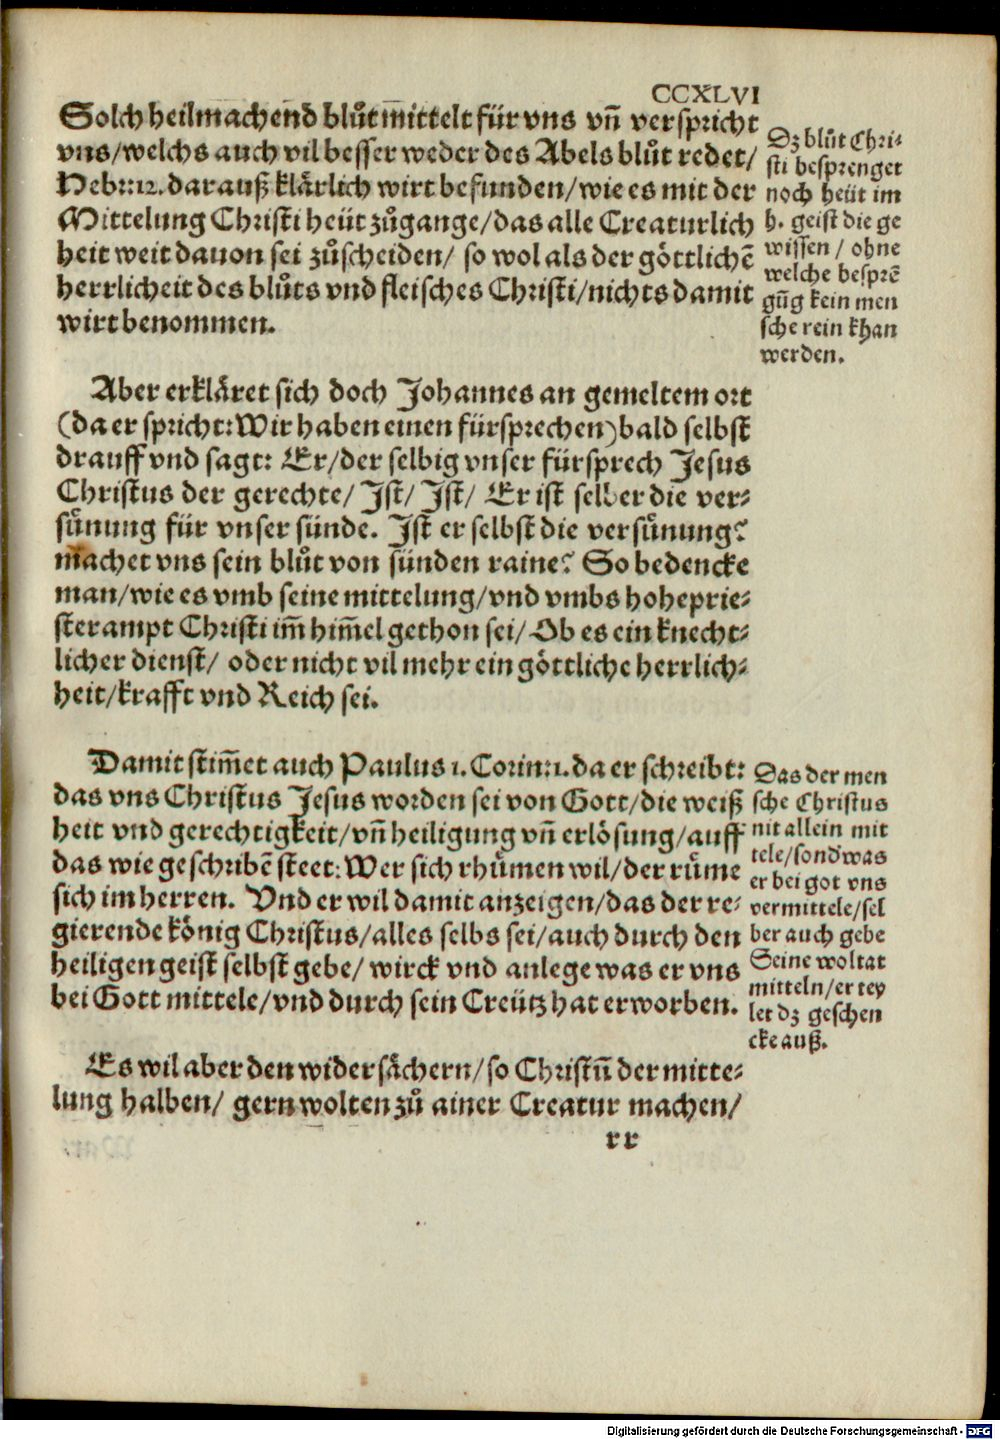 CCXLVI
Solch heilmachend blůt mittelt für vns vñ verspricht
vns/welchs auch vil besser weder des Abels blůt redet/
Hebr:12. darauß klärlich wirt befunden/wie es mit der
Mittelung Christi heüt zůgange/das alle Creaturlich
heit weit dauon sei zůscheiden/ so wol als der göttlichē
herrlicheit des blůts vnd fleisches Christi/nichts damit
wirt benommen.
Dz blůt Chri-
sti besprenget
noch heüt im
h. geist die ge
wissen / ohne
welche besprē
gũg kein men
sche rein khan
werden.
Aber erkläret sich doch Johannes an gemeltem ort
(da er spricht:Wir haben einen fürsprechen)bald selbst
drauff vnd sagt: Er/der selbig vnser fürsprech Jesus
Christus der gerechte/ Jst/ Jst/ Er ist selber die ver-
sünung für vnser sünde. Jst er selbst die versünung?
machet vns sein blůt von sünden raine? So bedencke
man/wie es vmb seine mittelung/vnd vmbs hoheprie-
sterampt Christi im̃ him̃el gethon sei/ Ob es ein knecht-
licher dienst/ oder nicht vil mehr ein göttliche herrlich-
heit/krafft vnd Reich sei.
Damit stim̃et auch Paulus 1. Corin:1. da er schreibt:
das vns Christus Jesus worden sei von Gott/die weiß
heit vnd gerechtigkeit/vñ heiligung vñ erlösung/auff
das wie geschribē steet: Wer sich rhümen wil/der rüme
sich im herren. Vnd er wil damit anzeigen/das der re-
gierende könig Christus/alles selbs sei/auch durch den
heiligen geist selbst gebe/ wirck vnd anlege was er vns
bei Gott mittele/vnd durch sein Creütz hat erworben.
Das der men
sche Christus
nit allein mit
tele/sond was
er bei got vns
vermittele/sel
ber auch gebe
Seine woltat
mitteln/er tey
let dz geschen
cke auß.
Es wil aber den widersächern/so Christũ der mitte-
lung halben/ gern wolten zů ainer Creatur machen/
rr
Digitalisierung gefördert durch die Deutsche Forschungsgemeinschaft - DFG